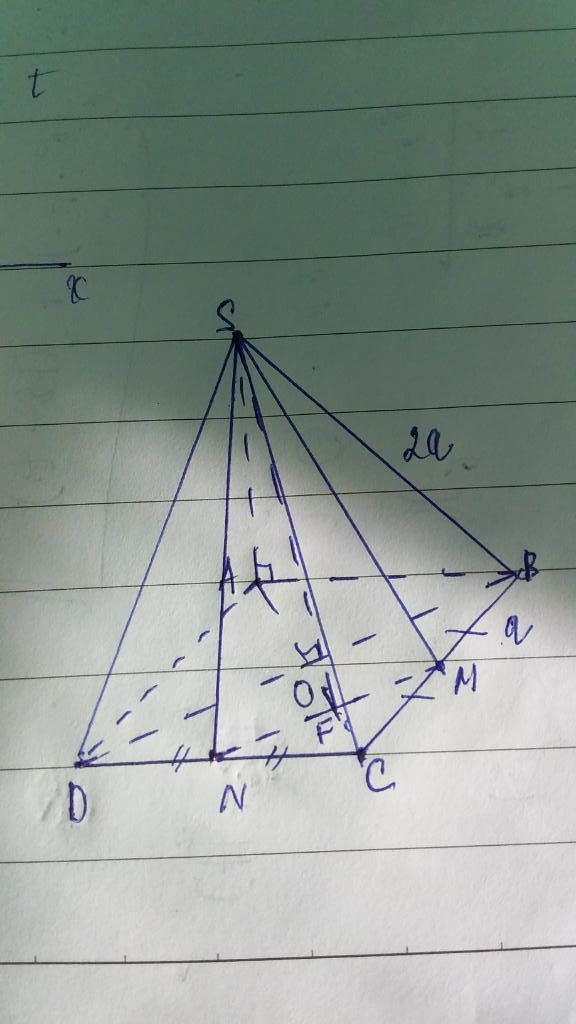 t
x
S
2a
A
B
a
O
M
F
D
N
C